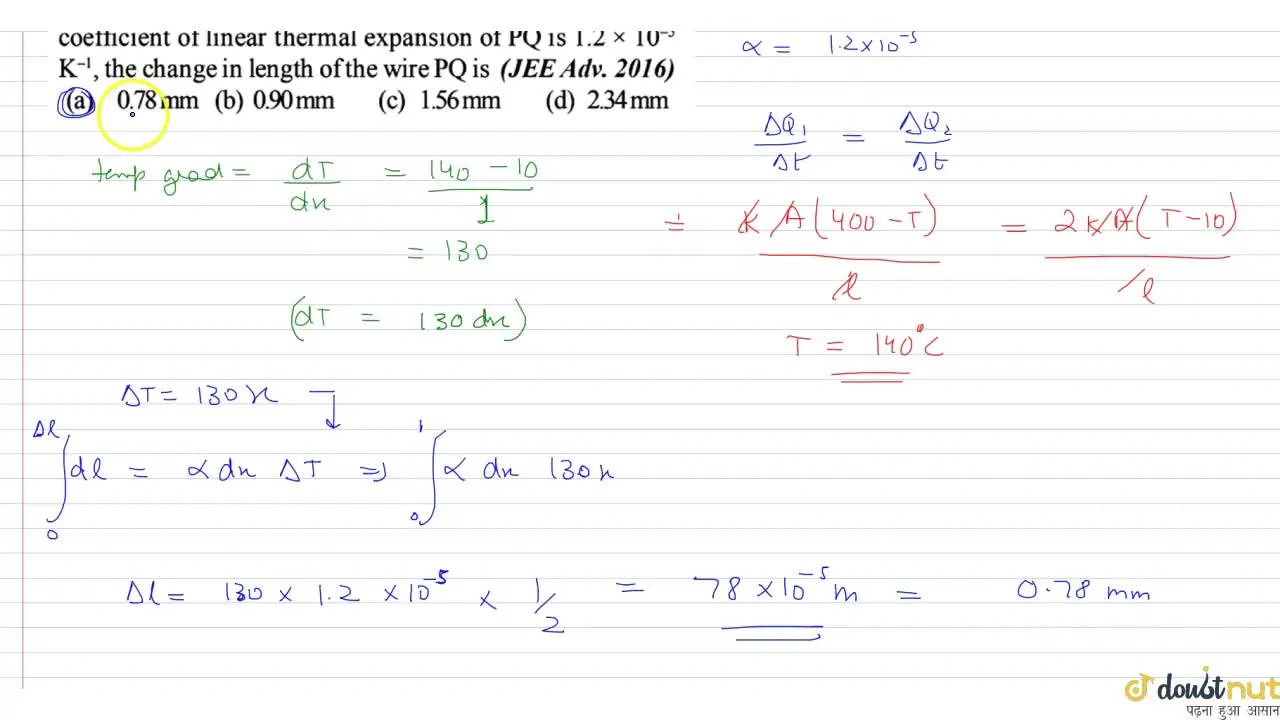 coefficient of linear thermal expansion of PQ is 1.2 × 10⁻⁵
K⁻¹, the change in length of the wire PQ is (JEE Adv. 2016)
(a) 0.78 mm (b) 0.90 mm (c) 1.56 mm (d) 2.34 mm
α = 1.2×10⁻⁵
ΔQ₁/Δt = ΔQ₂/Δt
temp grad = dT/dx = 140 − 10/1
= 130
= K A (400 − T)/l = 2 K A (T − 10)/l
(dT = 130 dx)
T = 140°C
ΔT = 130 x
∫₀^Δl dl = α dx ΔT ⇒ ∫₀^1 α dx 130x
Δl = 130 × 1.2 × 10⁻⁵ × 1/2 = 78 × 10⁻⁵ m = 0.78 mm
doubtnut
पढ़ना हुआ आसान